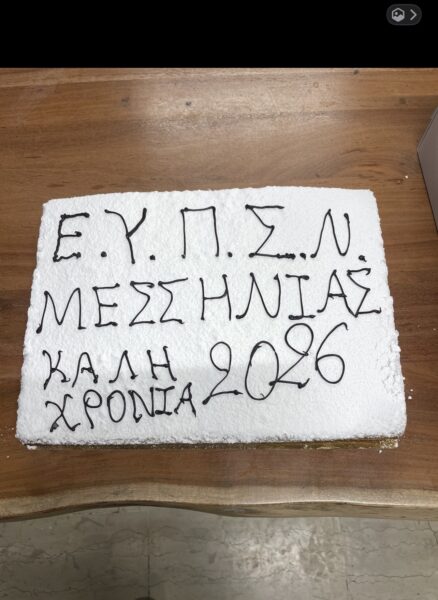 Ε.Υ.Π.Σ.Ν.
ΜΕΣΣΗΝΙΑΣ
ΚΑΛΗ 2026
ΧΡΟΝΙΑ